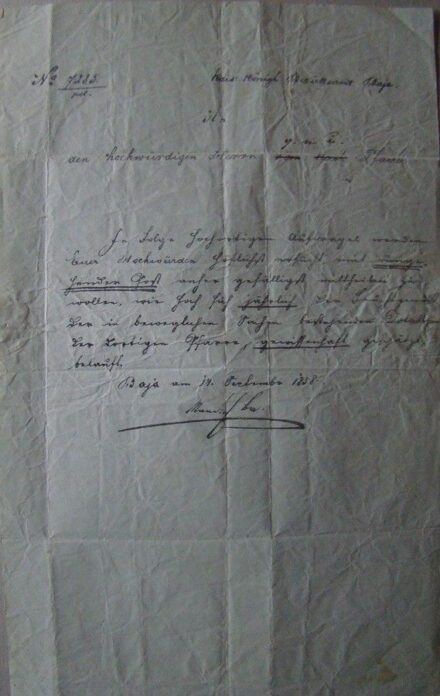 No 7283
pol.
Kais. Königl. Bezirksamt Baja.
An
g. n. u.
den hochwürdigen Herrn Pfarrer
In Folge hochortigen Auftrages werden
Euer Hochwürden höflichst ersucht mit umge-
hender Post anher gefälligst mittheilen zu
wollen, wie hoch sich jährlich der
der in beweglichen Sachen bestehenden Dotation
der dortigen Pfarre, gewissenhaft geschätzt
belauft.
Baja am 19. September 1858.